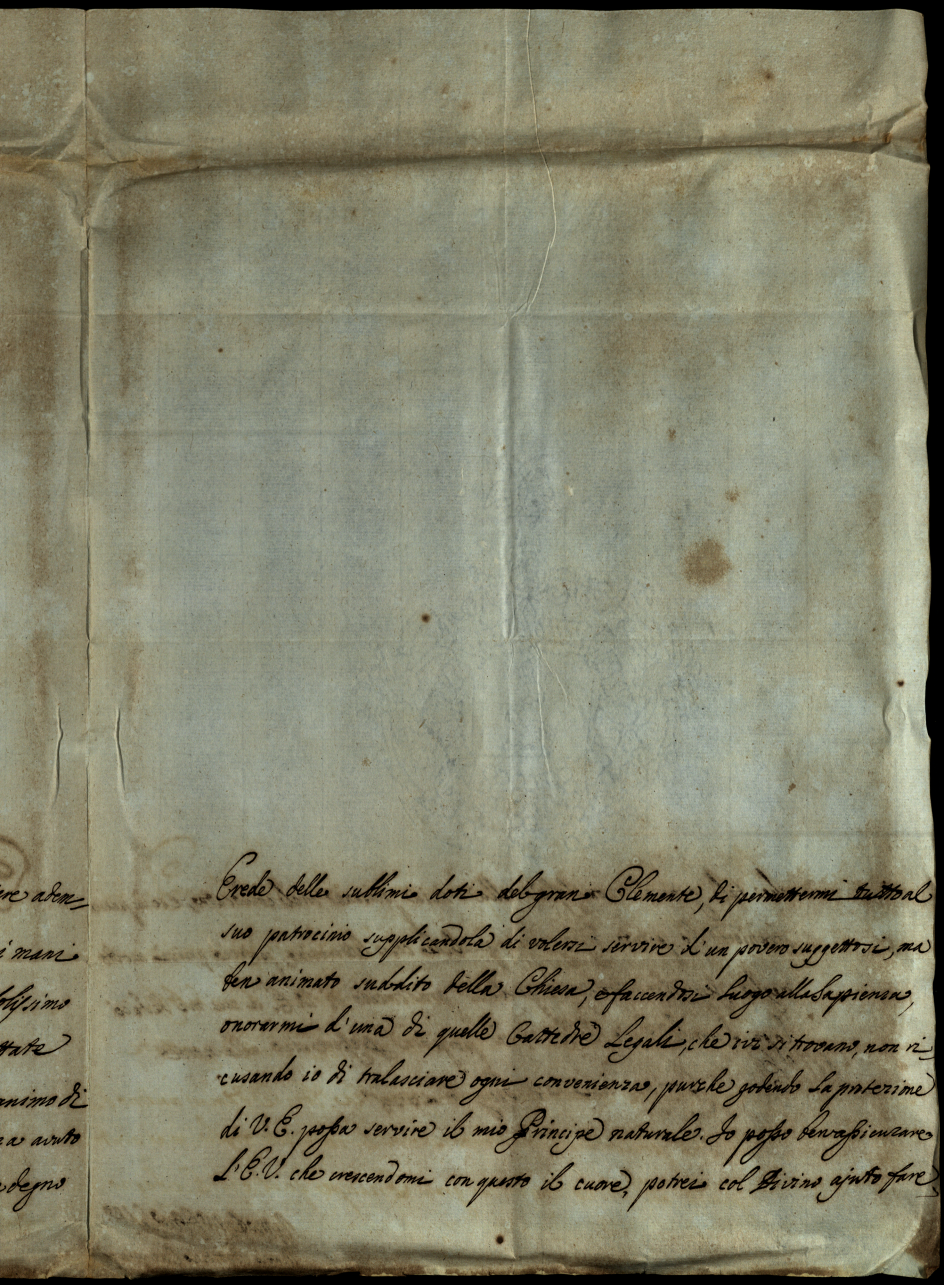 ere aden=
i mani
olissimo
ttate
animo di
a avuto
degno
Erede delle sublimi doti del gran Clemente, di permettermi tutto al
suo patrocinio supplicandola di volersi servire d'un povero suggetto sì, ma
ben animato suddito della Chiesa, e faccendosi luogo alla Sapienza,
onorarmi d'una di quelle Cattedre Legali, che ivi si trovano, non ri
cusando io di tralasciare ogni convenienza, purche godendo la protezione
di V. E. possa servire il mio Principe naturale. Io posso ben assicurare
L'E. V. che crescendomi con questo il cuore, potrei col Divino ajuto fare